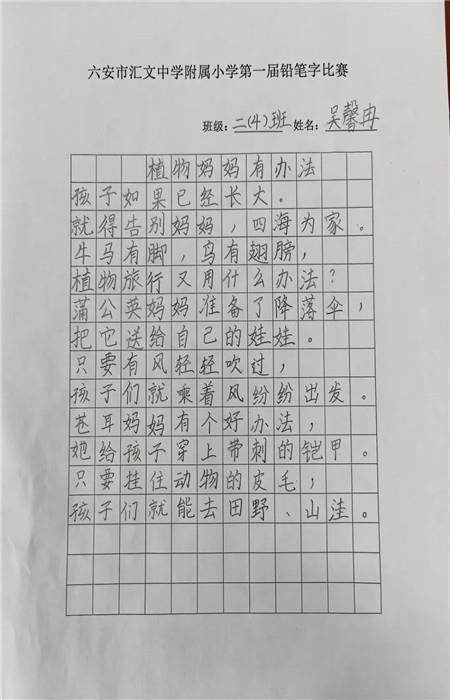 六安市汇文中学附属小学第一届铅笔字比赛
班级：二(4)班 姓名：吴馨冉
植物妈妈有办法
孩子如果已经长大。
就得告别妈妈，四海为家。
牛马有脚，鸟有翅膀，
植物旅行又用什么办法？
蒲公英妈妈准备了降落伞，
把它送给自己的娃娃。
只要有风轻轻吹过，
孩子们就乘着风纷纷出发。
苍耳妈妈有个好办法，
她给孩子穿上带刺的铠甲。
只要挂住动物的皮毛，
孩子们就能去田野、山洼。